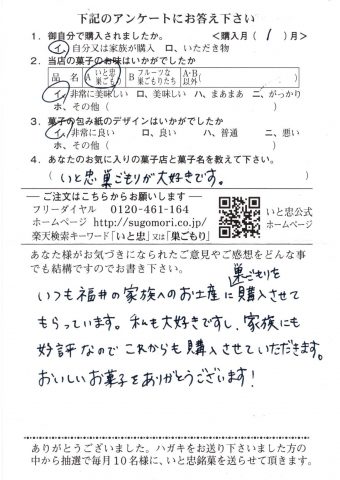 下記のアンケートにお答え下さい
1．御自分で購入されましたか。　＜購入月（1）月＞
イ．自分又は家族が購入　ロ．いただき物
2．当店の菓子のお味はいかがでしたか
品　名　A いと忠巣ごもり　B フルーツな巣ごもりたち　A・B以外（　　）
イ．非常に美味しい　ロ．美味しい　ハ．まあまあ　ニ．がっかり
ホ．その他（　　）
3．菓子の包み紙のデザインはいかがでしたか
イ．非常に良い　ロ．良い　ハ．普通　ニ．悪い
ホ．その他（　　）
4．あなたのお気に入りの菓子店と菓子名を教えて下さい。
（いと忠 巣ごもりが大好きです。）
―ご注文はこちらからお願いします―
フリーダイヤル　0120-461-164
ホームページ　http://sugomori.co.jp/
楽天検索キーワード「いと忠」又は「巣ごもり」
いと忠公式
ホームページ
あなた様がお気づきになられたご意見やご感想をどんな事
でも結構ですのでお書き下さい。
巣ごもりを
いつも福井の家族へのお土産に購入させて
もらっています。私も大好きですし、家族にも
好評なのでこれからも購入させていただきます。
おいしいお菓子をありがとうございます！
ありがとうございました。ハガキをお送り下さいました方の
中から抽選で毎月10名様に、いと忠銘菓を送らせて頂きます。